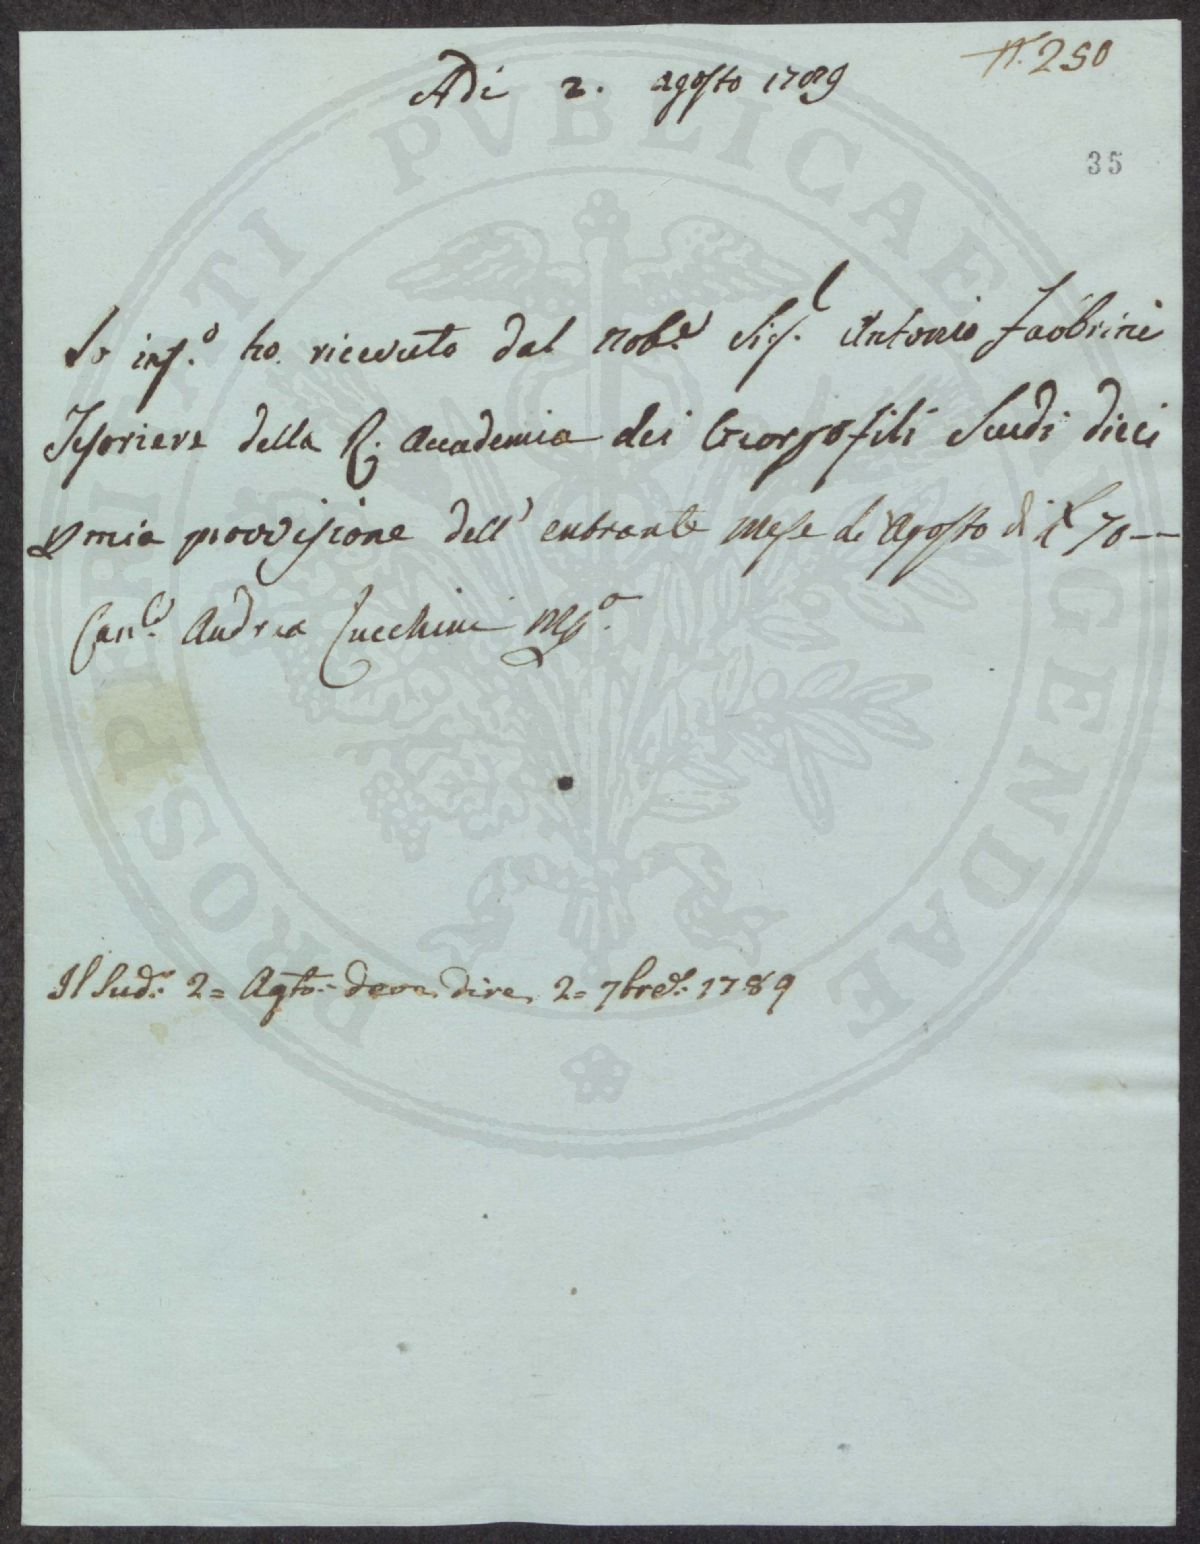 N.° 250
Adi 2. agosto 1789
35
Io inf.° ho ricevuto dal Nob.e Sig.r Antonio Fabbrini
Tesoriere della R. Accademia dei Georgofili Scudi dieci
p mia provvisione dell' entrante Mese di Agosto di £ 70 --
Can.co Andrea Zucchini Mp.a
Il Sud.o 2= Agto. deve dire 2= 7bre. 1789
PROSPERITATI PVBLICAE AVGENDAE